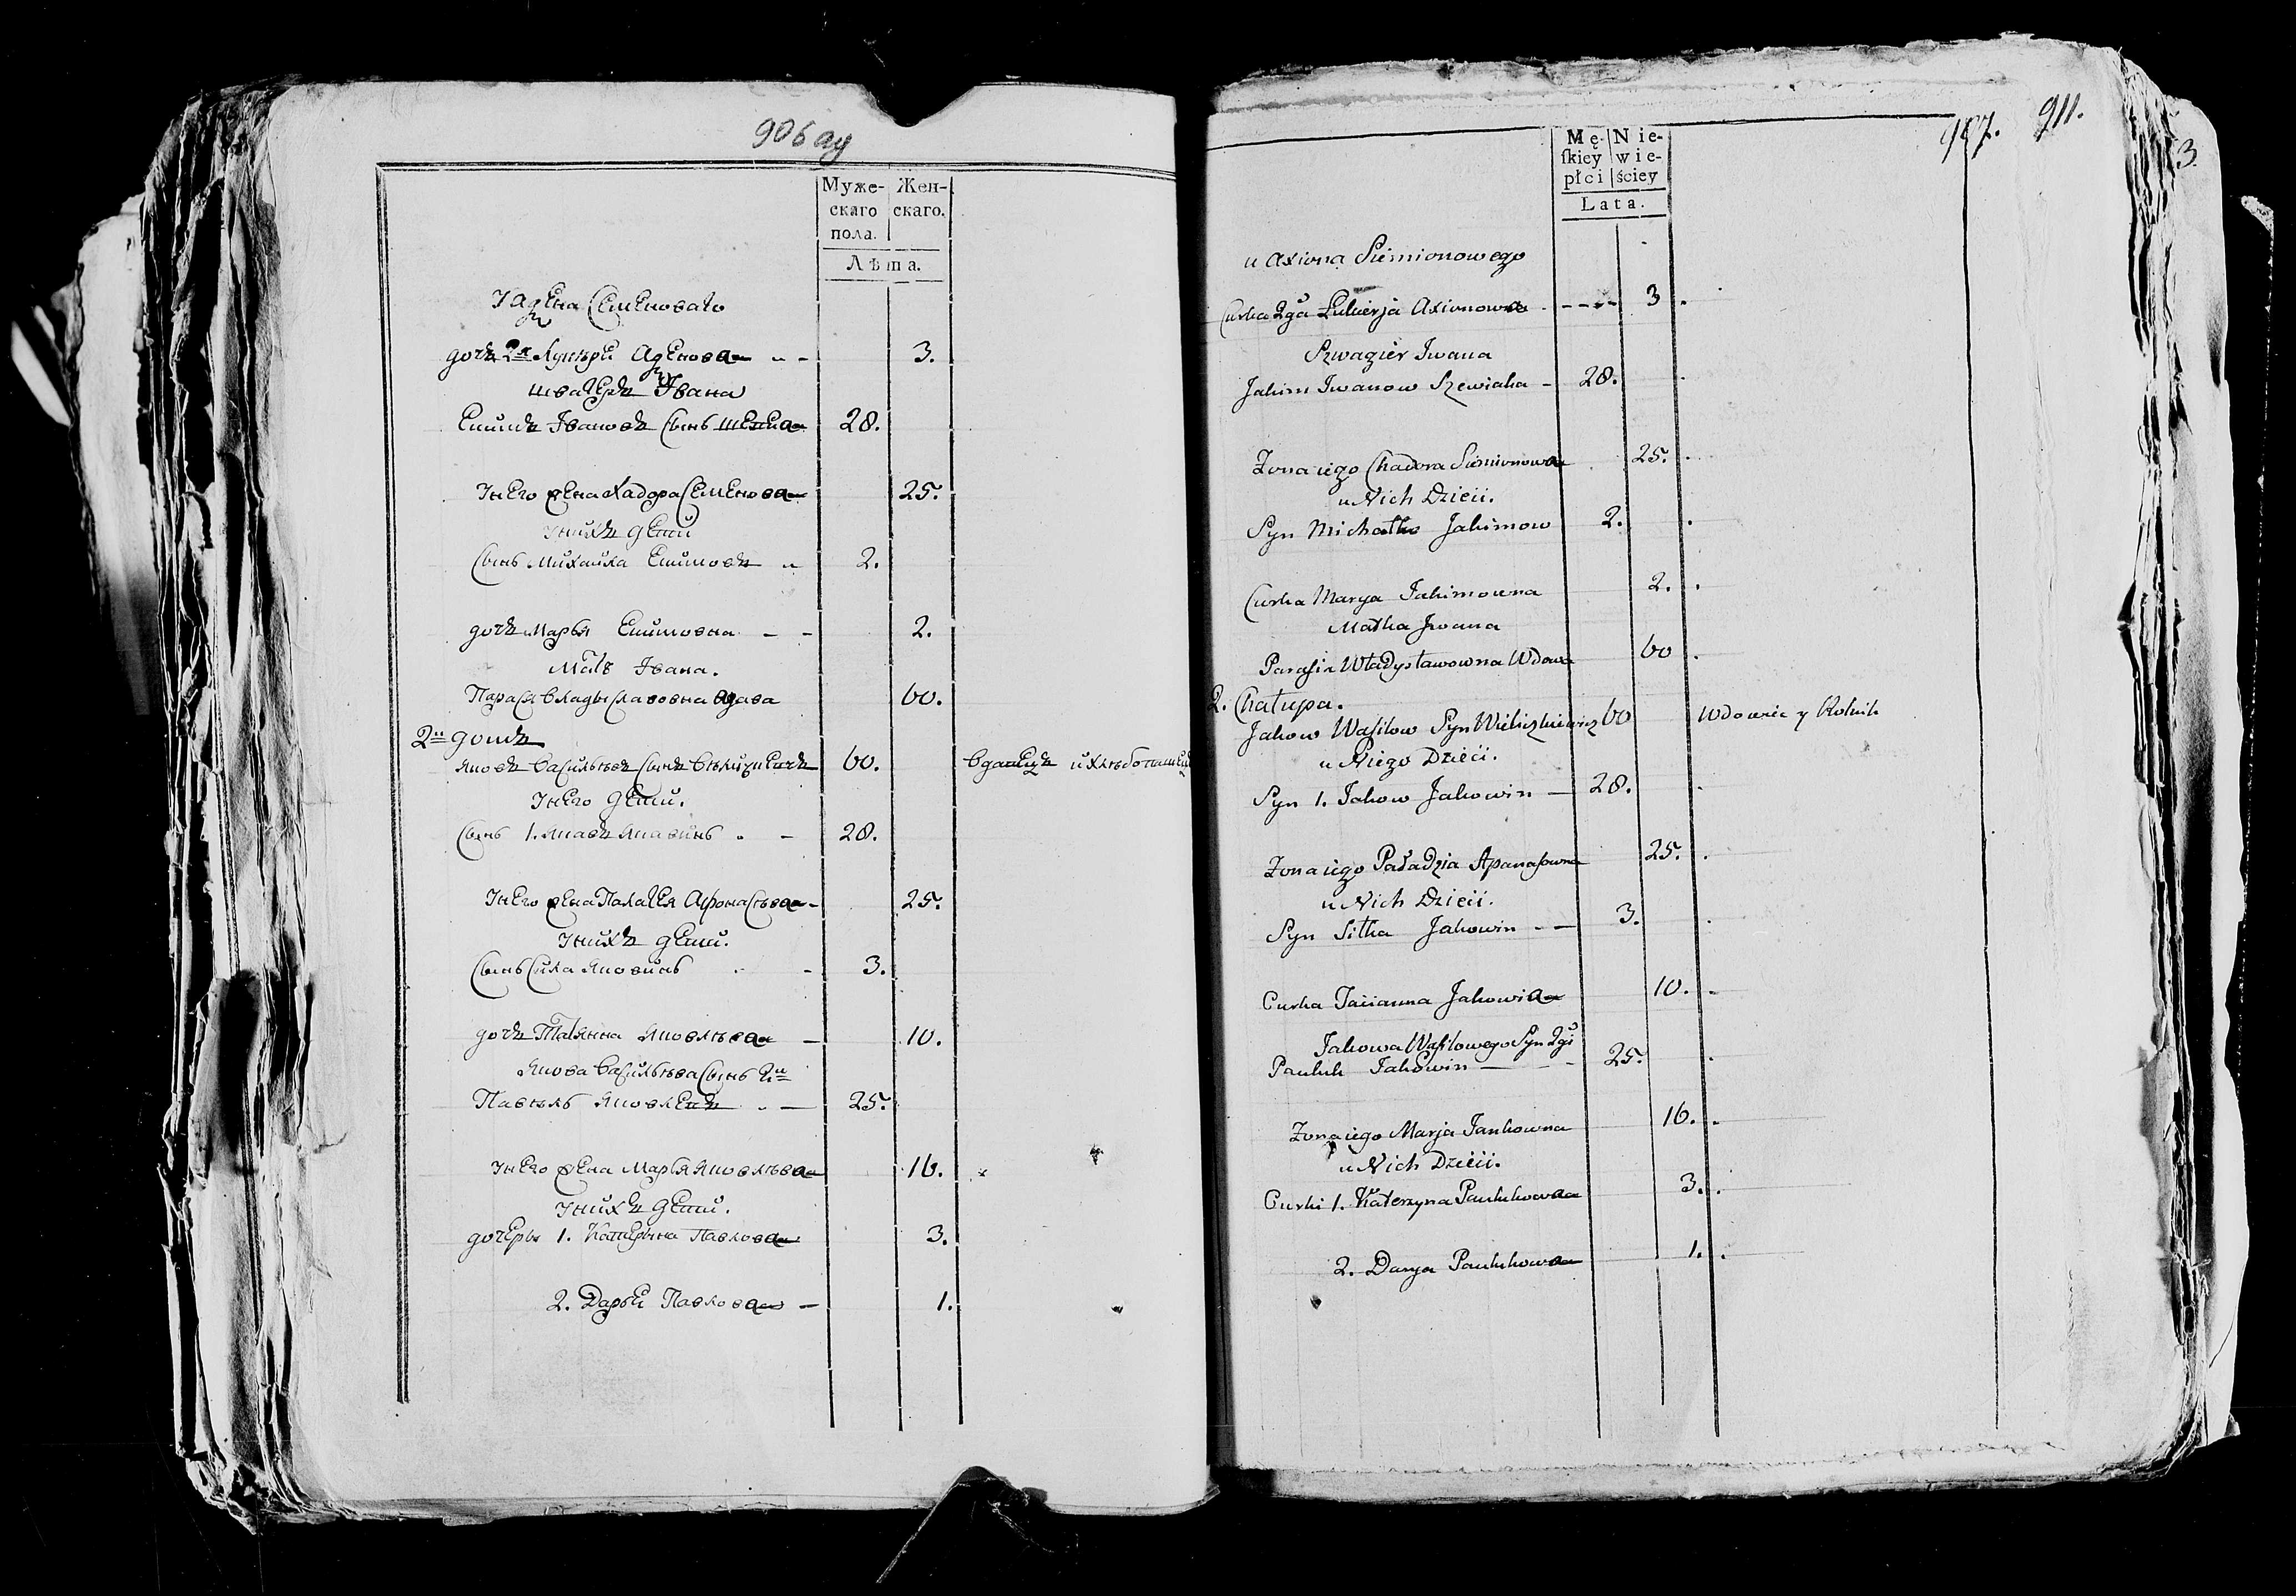 906 ау
Муже- Жен-
скаго скаго.
пола.
Лѣта.
Семеновато
дочъ 2я 3.
швагеръ Iвана
Ешимъ Iвановъ сынъ 28.
унего жена Хадора Семенова 25.
унихъ дети
сынъ Михайла Екимовъ 2.
дочъ Марья Екимовна 2.
Мать Iвана.
Парася Владыславовна вдова 60.
2й домъ
Яковъ Васильевъ сынъ 60. вдовецъ и хлебопашецъ
унего дети.
сынъ 1. Яковъ Яковинъ 28.
унего жена Палагея Афонасьева 25.
унихъ дети.
сынъ Сила Яковинъ 3.
дочъ Татьянна Яковлева 10.
Якова Васильева сынъ 2й
Павелъ Яковлевъ 25.
унего жена Марья Яковлева 16.
унихъ дети.
дочеры 1. Катерына Павлова 3.
2. Дарьи Павлова 1.
907. 911.
3.
Mę- Nie-
skiey wie-
płci ściey
Lata.
u Axiona Siemionowego
Curka 2ga Łukierja Axionowna 3.
Szwagier Iwana
Jakim Iwanow Szewiaka 28.
Zona iego Chadora Siemionowna 25.
u Nich Dzieii.
Syn Michałko Jakimow 2.
Curka Marya Jakimowna 2.
Matka Jwana
Parasia Władysławowna Wdowa 60
2. Chałupa.
Jakow Wasilow Syn Wieliczkiewicz 60 Wdowiec y Rolnik
u Niego Dzieii.
Syn 1. Jakow Jakowin 28.
Zona iego Paładzia Apanasowna 25.
u Nich Dzieii.
Syn Siłka Jakowin 3.
Curka Taiianna Jakowina 10.
Jakowa Wasilowego Syn 2gi
Pauluk Jakowin 25.
Zona iego Marja Jankowna 16.
u Nich Dzieii.
Curki 1. Katerzyna Paulukowna 3.
2. Darya Paulukowna 1.